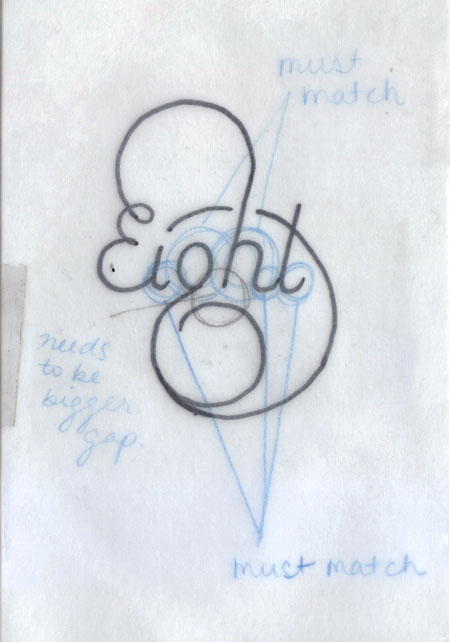 must
match
Eight
needs
to be
bigger
gap.
must match